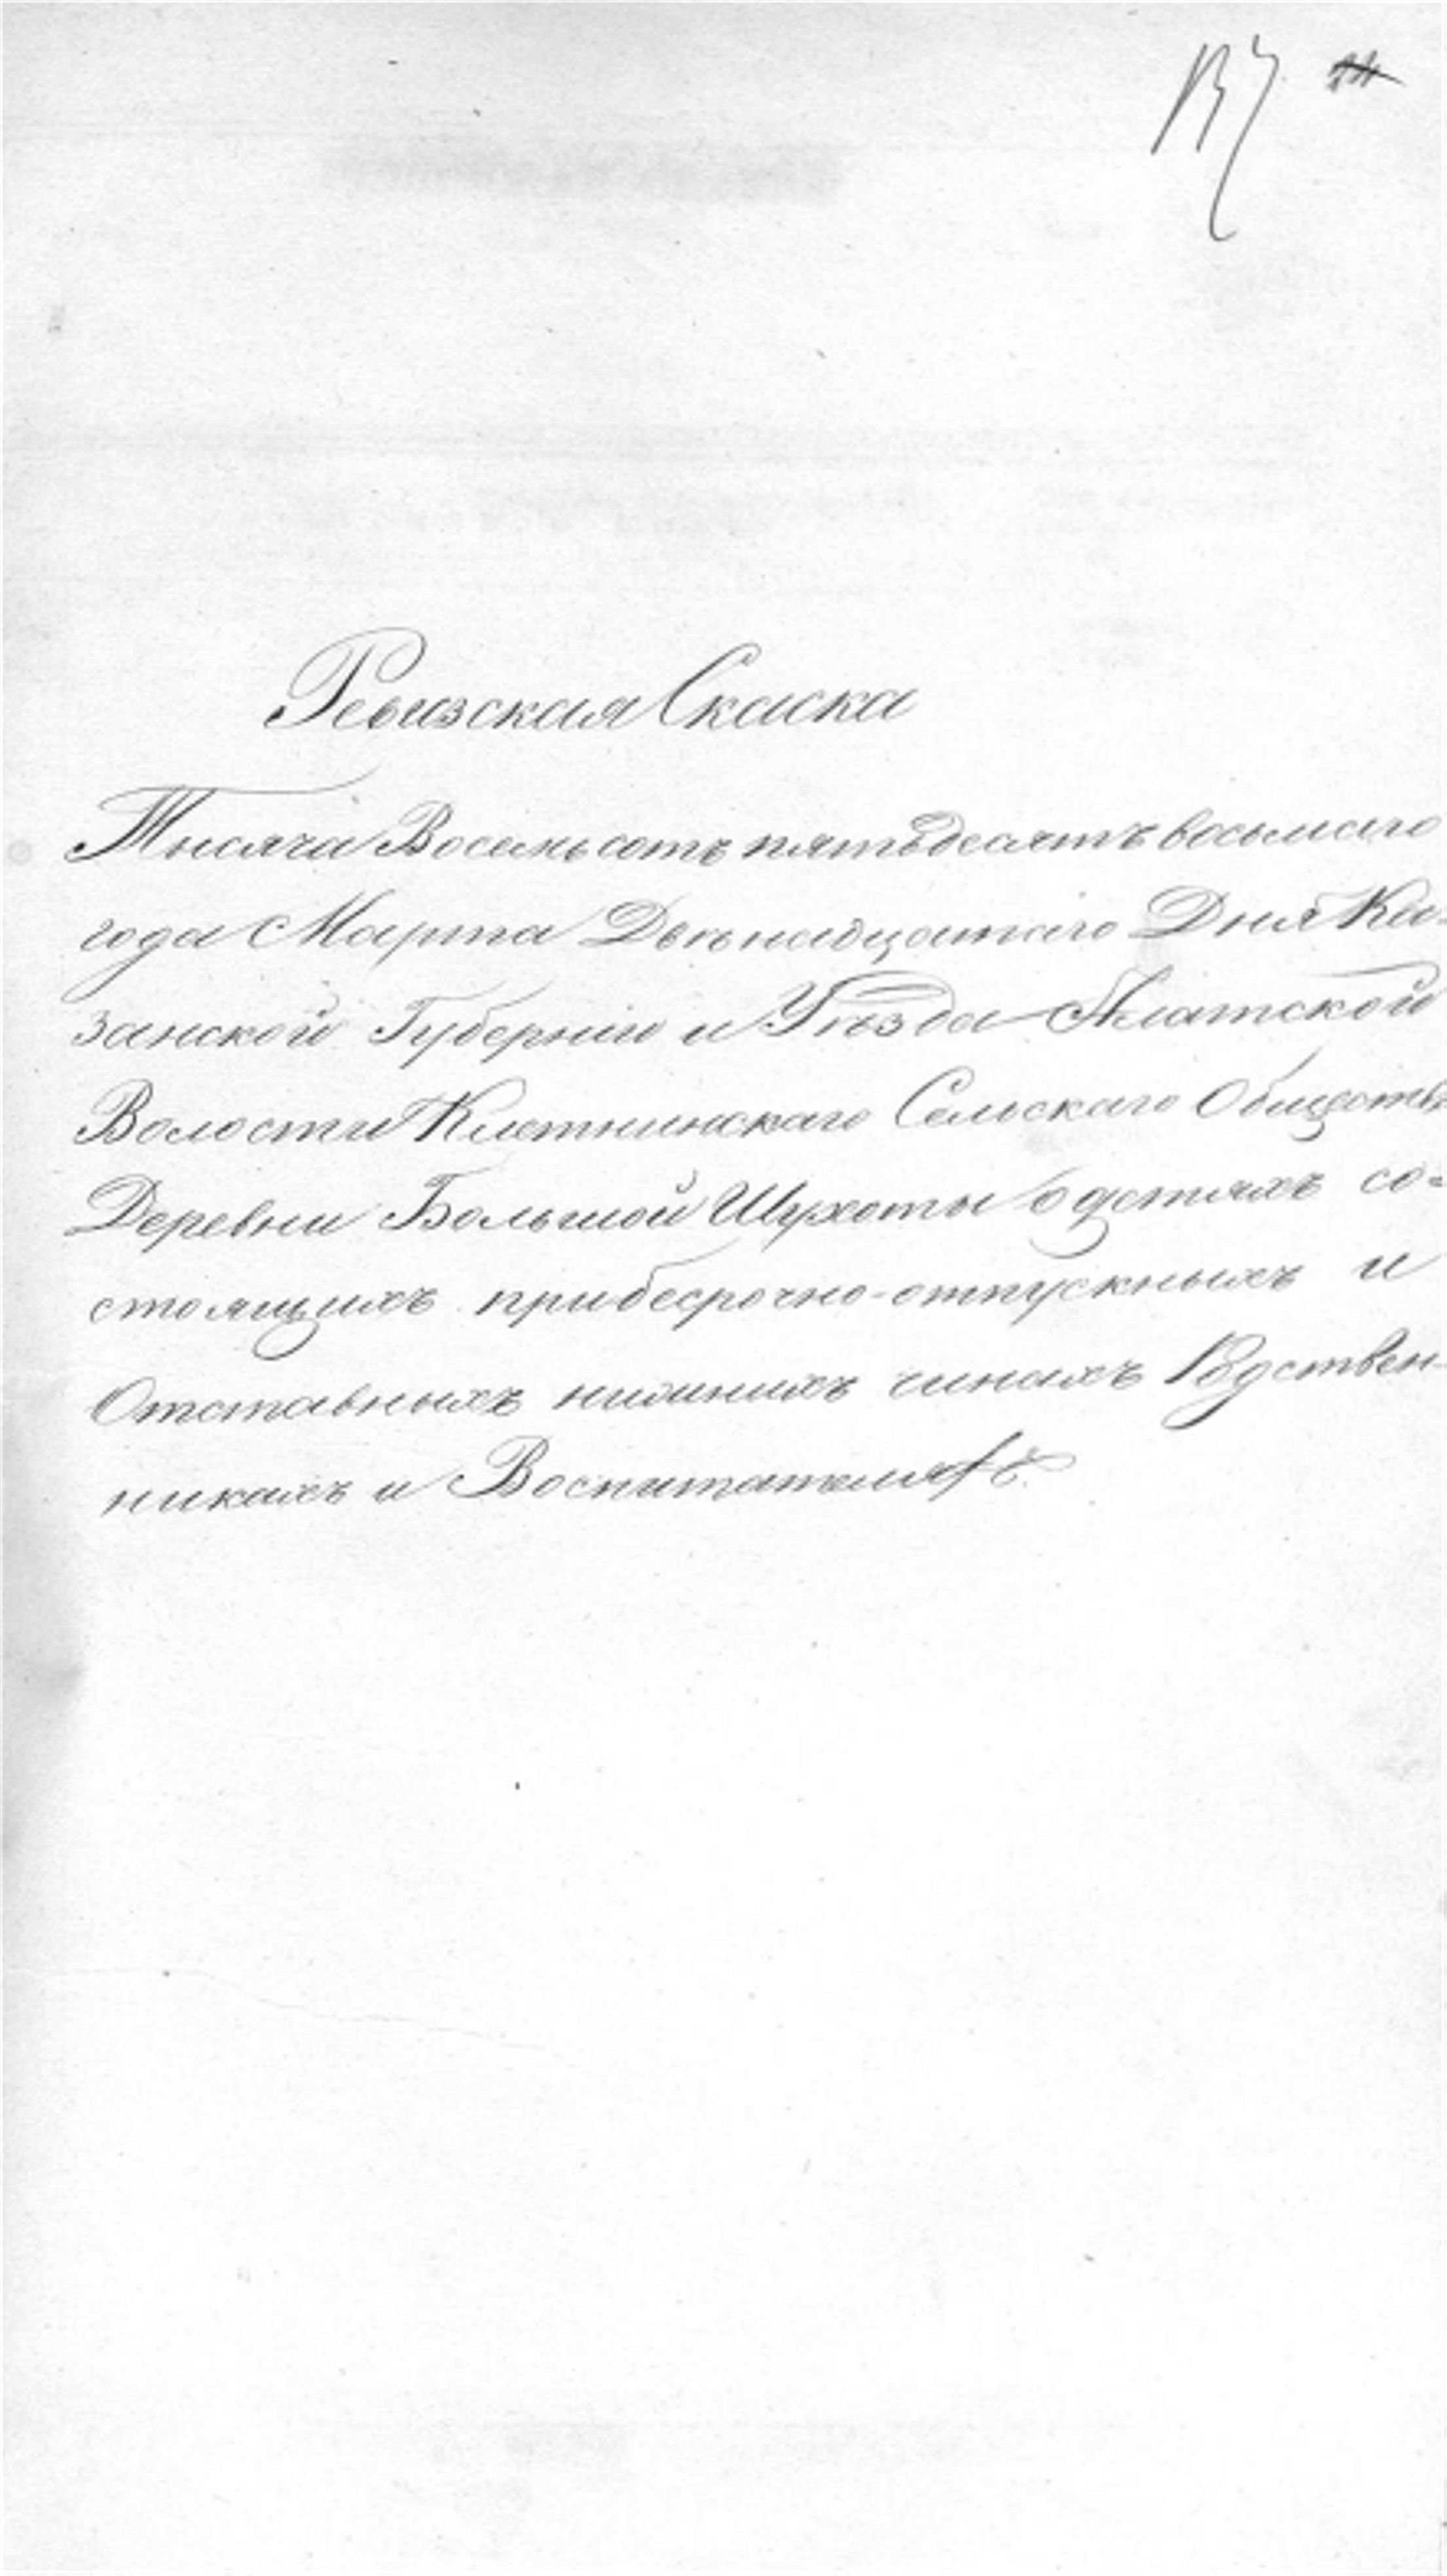 Ревизская Скаска
Тысяча Восемьсотъ пятьдесятъ восьмаго
года Марта Двѣнадцатаго Дня Ка-
занской Губерніи и Уѣзда Алатской
Волости Клетнинскаго Сельскаго Общества
Деревни Большой Шухоты о детяхъ со=
стоящихъ при бесрочно-отпускныхъ и
Отставныхъ нижнихъ чинахъ Родствен-
никахъ и Воспитателях